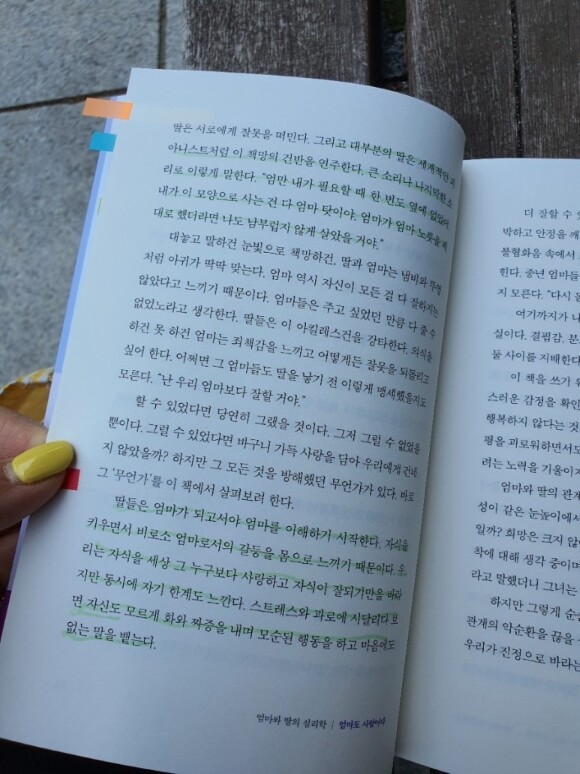 딸은 서로에게 잘못을 떠민다. 그리고 대부분의 딸은 세계적인 피
아니스트처럼 이 책망의 건반을 연주한다. 큰 소리나 나지막한 소
리로 이렇게 말한다. "엄만 내가 필요할 때 한 번도 옆에 없었어.
내가 이 모양으로 사는 건 다 엄마 탓이야. 엄마가 엄마 노릇을 제
대로 했더라면 나도 남부럽지 않게 살았을 거야."
대놓고 말하건 눈빛으로 책망하건, 딸과 엄마는 냄비와 뚜껑
처럼 아귀가 딱딱 맞는다. 엄마 역시 자신이 모든 걸 다 잘하지는
않았다고 느끼기 때문이다. 엄마들은 주고 싶었던 만큼 다 줄 수
없었노라고 생각한다. 딸들은 이 아킬레스건을 강타한다. 의식을
하건 못 하건 엄마는 죄책감을 느끼고 어떻게든 잘못을 되돌리고
싶어 한다. 어쩌면 그 엄마들도 딸을 낳기 전 이렇게 맹세했을지도
모른다. "난 우리 엄마보다 잘할 거야."
할 수 있었다면 당연히 그랬을 것이다. 그저 그럴 수 없었을
뿐이다. 그럴 수 있었다면 바구니 가득 사랑을 담아 우리에게 건네
지 않았을까? 하지만 그 모든 것을 방해했던 무언가가 있다. 바로
그 '무언가'를 이 책에서 살펴보려 한다.
딸들은 엄마가 되고서야 엄마를 이해하기 시작한다. 자식을
키우면서 비로소 엄마로서의 갈등을 몸으로 느끼기 때문이다. 우
리는 자식을 세상 그 누구보다 사랑하고 자식이 잘되기만을 바라
지만 동시에 자기 한계도 느낀다. 스트레스와 과로에 시달리다 보
면 자신도 모르게 화와 짜증을 내며 모순된 행동을 하고 마음에도
없는 말을 뱉는다.
엄마와 딸의 심리학 | 엄마도 사람이다
더 잘할 수 있
박하고 안정을 깨
불협화음 속에서
힌다. 중년 엄마들
지 모른다. "다시
여기까지가 나
실이다. 결핍감, 분
둘 사이를 지배한다
이 책을 쓰기
스러운 감정을 확인
행복하지 않다는 것
평을 괴로워하면서도
려는 노력을 기울이지
엄마와 딸의 관계
성이 같은 눈높이에서
일까? 희망은 크지 않
착에 대해 생각 중이며
라고 말했더니 그녀는
하지만 그렇게 순
관계의 악순환을 끊을
우리가 진정으로 바라는